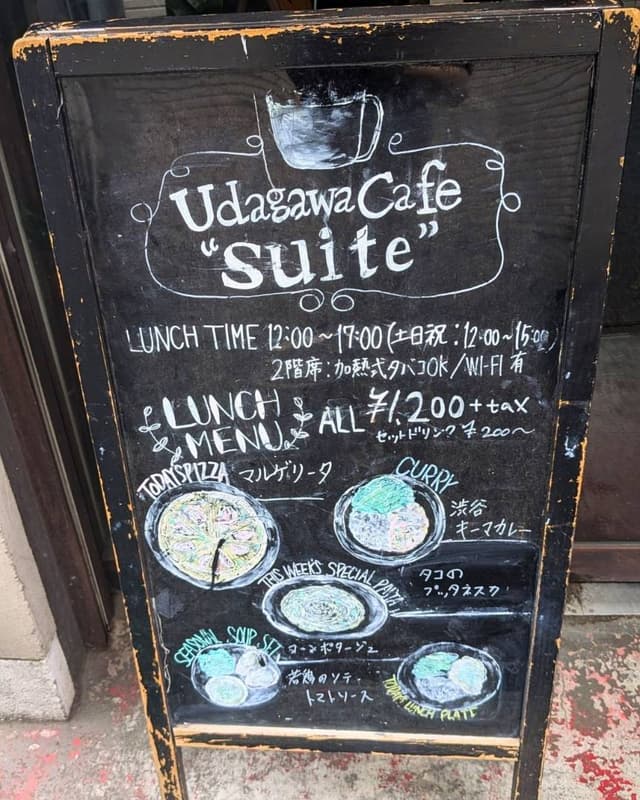 Udagawa Cafe
"suite"
LUNCH TIME 12:00～17:00 (土日祝：12:00～15:00)
2階席：加熱式タバコOK/WI-FI 有
LUNCH MENU ALL ¥1,200+tax
セットドリンク ¥200～
TODAY'S PIZZA マルゲリータ
CURRY
渋谷
キーマカレー
THIS WEEK'S SPECIAL PASTA
タコの
プッタネスカ
SEASONAL SOUP SET
コーンポタージュ
若鶏のソテー
トマトソース
TODAY LUNCH PLATE